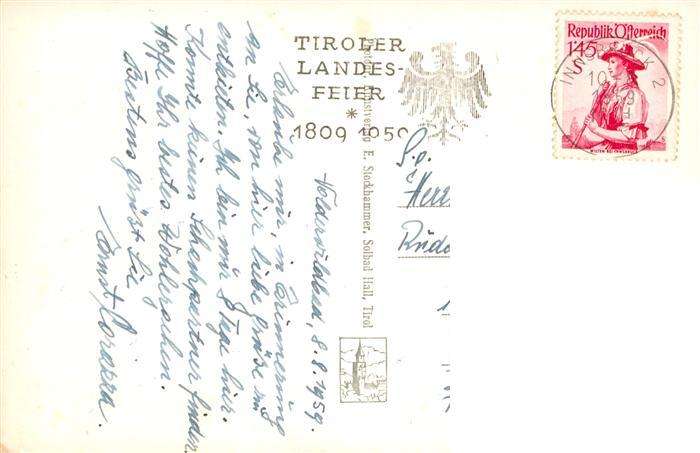 TIROLER
LANDES-
FEIER
*
1809 1959
Republik Österreich
1'45
S
INNSBRUCK 2
S. g.
Herr
Rudo
E. Stockhammer, Solbad Hall, Tirol
Volderwildbad, 8.8.1959.
Erlaube mir, in Erinnerung
an Sie, von hier liebe Grüße zu
entbieten. Ich bin nur 8 Tage hier.
Konnte keinen Schachpartner finden.
Hoffe Ihr bestes Wohlergehen.
Bestens grüßt Sie
Ernst